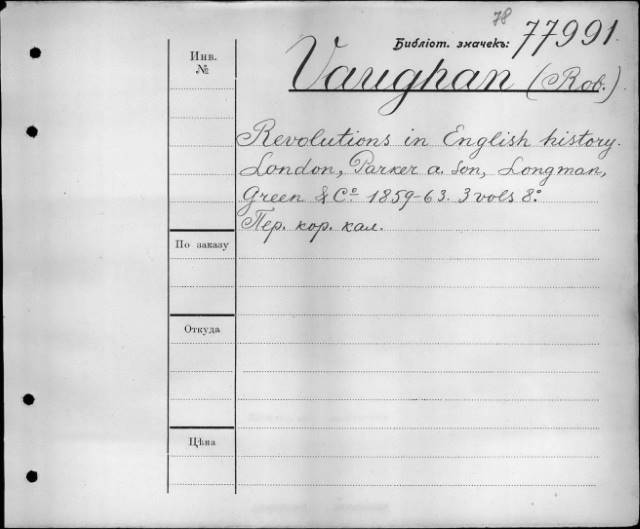 78
Библіот. значекъ: 77991.
Инв.
№
Vaughan (Rob.)
Revolutions in English history.
London, Parker a. Son, Longman,
Green & Cº 1859-63. 3 vols 8º.
Пер. кор. кал.
По заказу
Откуда
Цѣна